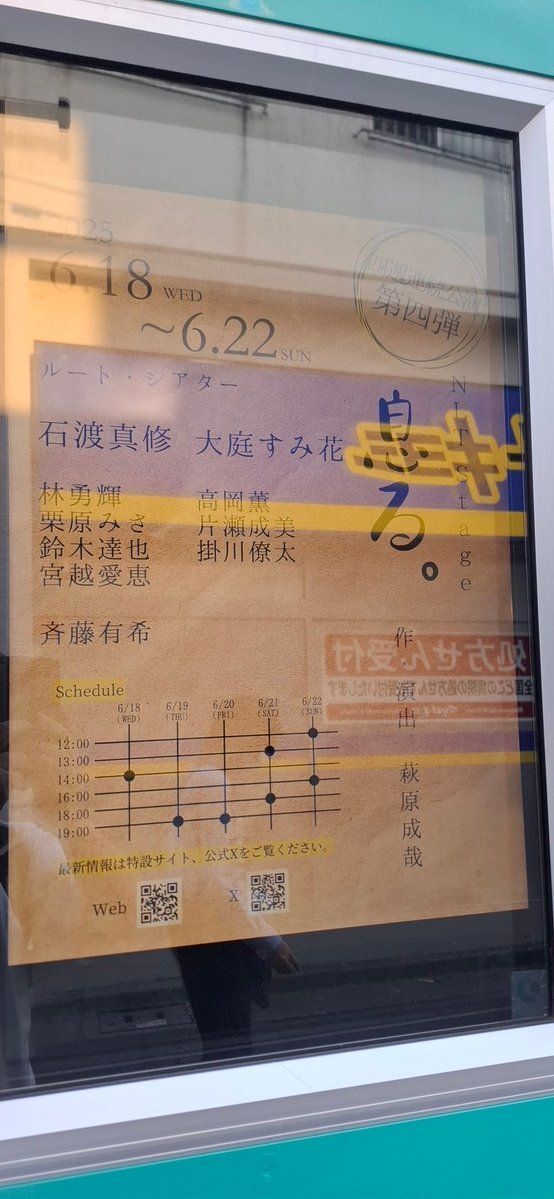 2025
6.18 WED
～6.22 SUN
四週連続公演
第四弾
ルート・シアター
NLT stage
息る。
石渡真修 大庭すみ花
林勇輝 高岡薫
栗原みさ 片瀬成美
鈴木達也 掛川僚太
宮越愛恵
斉藤有希
作・演出 萩原成哉
Schedule
6/18 6/19 6/20 6/21 6/22
(WED) (THU) (FRI) (SAT) (SUN)
12:00
13:00
14:00
16:00
18:00
19:00
最新情報は特設サイト、公式Xをご覧ください。
Web X
処方せん受付
全国どこの病院の処方せんも受付いたします